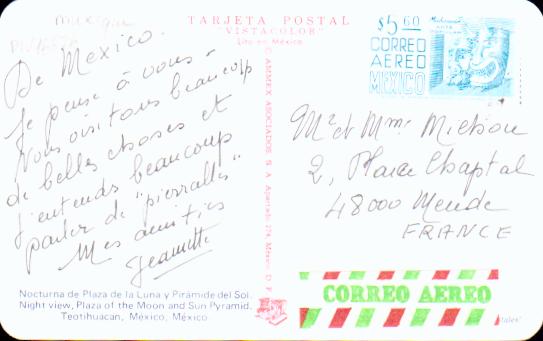 Mexique
TARJETA POSTAL
"VISTACOLOR"
Lito en México
$5.60
CORREO
AEREO
MEXICO
De Mexico.
Je pense à vous -
Nous visitons beaucoup
de belles choses et
j'entends beaucoup
parler de "pierrailles"
Mes amitiés
Jeannette
AMMEX ASOCIADOS S A Apartado 274, México D F
Mr et Mme
2, Place Chaptal
48000 Mende
FRANCE
CORREO AEREO
Nocturna de Plaza de la Luna y Pirámide del Sol.
Night view, Plaza of the Moon and Sun Pyramid.
Teotihuacan, México, México